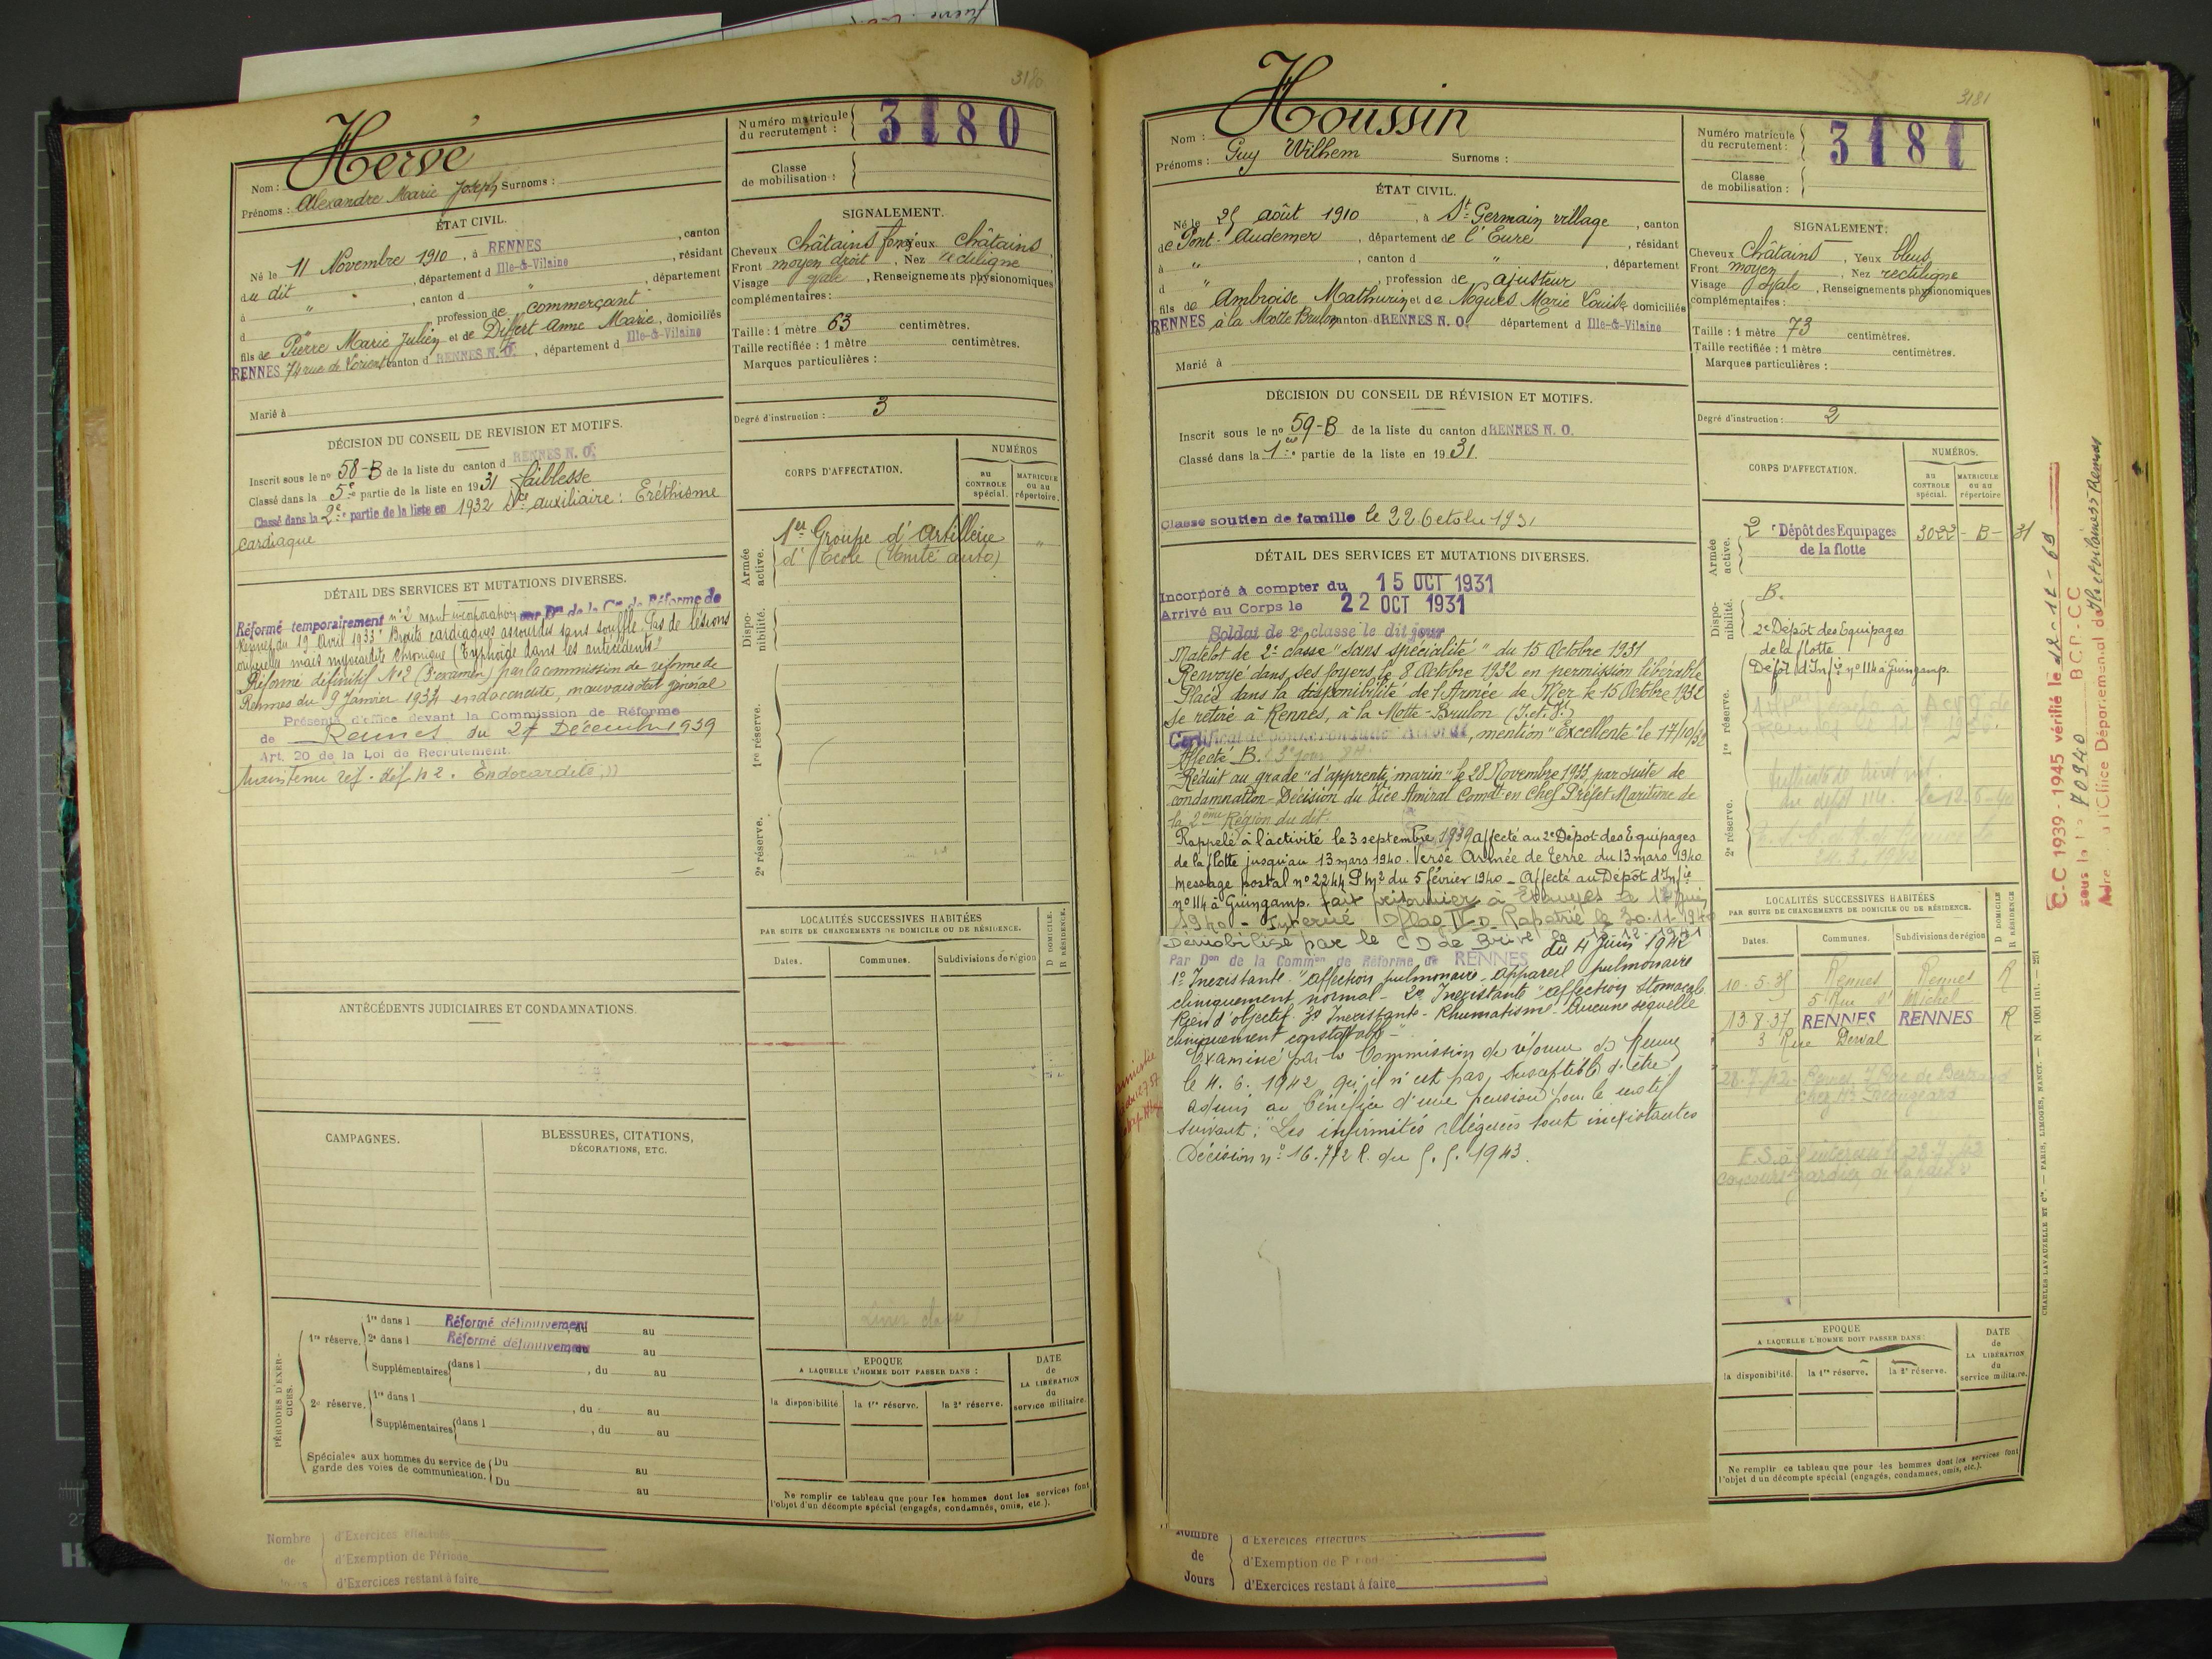 3180
Hervé
Nom :
Prénoms : Alexandre Marie Joseph Surnoms :
Numéro matricule du recrutement : 3180
Classe de mobilisation :
ÉTAT CIVIL.
Né le 11 Novembre 1910, à RENNES, canton
du dit, département d Ille-&-Vilaine, résidant
à ", canton d ", département
d ", profession de commerçant
fils de Pierre Marie Julien et de Difert Anne Marie, domiciliés
RENNES 74 rue de Lorient canton d RENNES N. O., département d Ille-&-Vilaine
Marié à
SIGNALEMENT.
Cheveux Châtains foncé Yeux châtains
Front moyen droit, Nez rectiligne
Visage ovale, Renseignements physionomiques
complémentaires :
Taille : 1 mètre 63 centimètres.
Taille rectifiée : 1 mètre centimètres.
Marques particulières :
Degré d'instruction : 3
DÉCISION DU CONSEIL DE REVISION ET MOTIFS.
Inscrit sous le nº 58-B de la liste du canton d RENNES N. O.
Classé dans la 5e partie de la liste en 1931 faiblesse
Classé dans la 2e partie de la liste en 1932 Sce auxiliaire : Eréthisme
cardiaque
CORPS D'AFFECTATION.
NUMÉROS
au CONTROLE spécial.
MATRICULE ou au répertoire.
Armée active.
1er Groupe d'Artillerie
d'Ecole (Unité auto)
Disponibilité.
1re réserve.
2e réserve.
DÉTAIL DES SERVICES ET MUTATIONS DIVERSES.
Réformé temporairement nº2 avant incorporation par Don de la Con de Réforme de
Rennes du 19 Avril 1933 "Bruits cardiaques assourdis sans souffle. Pas de lésions
mais myocardite chronique (Typhoïde dans les antécédents"
Réformé définitif Nº2 (3e examen) par la commission de réforme de
Rennes du 9 Janvier 1934 endocardite, mauvais état général
Présenté d'office devant la Commission de Réforme
de Rennes du 27 Décembre 1939
Art. 20 de la Loi de Recrutement.
Maintenu réf. déf. n 2. Endocardite."
ANTÉCÉDENTS JUDICIAIRES ET CONDAMNATIONS.
LOCALITÉS SUCCESSIVES HABITÉES
PAR SUITE DE CHANGEMENTS DE DOMICILE OU DE RÉSIDENCE.
Dates.
Communes.
Subdivisions de région
D DOMICILE.
R RÉSIDENCE.
CAMPAGNES.
BLESSURES, CITATIONS,
DÉCORATIONS, ETC.
PÉRIODES D'EXERCICES.
1re réserve.
1re dans l Réformé définitivement, du au
2e dans l Réformé définitivement, du au
Supplémentaires dans l , du au
2e réserve.
1re dans l , du au
Supplémentaires dans l , du au
Spéciales aux hommes du service de garde des voies de communication.
Du au
Du au
EPOQUE
A LAQUELLE L'HOMME DOIT PASSER DANS :
la disponibilité
la 1re réserve.
la 2e réserve.
DATE de LA LIBÉRATION du service militaire.
Ne remplir ce tableau que pour les hommes dont les services font
l'objet d'un décompte spécial (engagés, condamnés, omis, etc.).
Nombre de Jours
d'Exercices effectués
d'Exemption de Période
d'Exercices restant à faire
3181
Houssin
Nom :
Prénoms : Guy Wilhem Surnoms :
Numéro matricule du recrutement : 3181
Classe de mobilisation :
ÉTAT CIVIL.
Né le 25 août 1910, à St Germain village, canton
de Pont-Audemer, département de l'Eure, résidant
à ", canton d ", département
d ", profession de ajusteur
fils de Ambroise Mathurin et de Nogues Marie Louise domiciliés
RENNES à la Motte Brulon canton d RENNES N. O. département d Ille-&-Vilaine
Marié à
SIGNALEMENT.
Cheveux Châtains, Yeux bleus
Front moyen, Nez rectiligne
Visage ovale, Renseignements physionomiques
complémentaires :
Taille : 1 mètre 73 centimètres.
Taille rectifiée : 1 mètre centimètres.
Marques particulières :
Degré d'instruction : 2
DÉCISION DU CONSEIL DE RÉVISION ET MOTIFS.
Inscrit sous le nº 59-B de la liste du canton d RENNES N. O.
Classé dans la 1ère partie de la liste en 1931.
Classé soutien de famille le 22 Octobre 1931
CORPS D'AFFECTATION.
NUMÉROS.
au CONTROLE spécial.
MATRICULE ou au répertoire
Armée active.
2e Dépôt des Equipages
de la flotte
3022 - B - 31
Disponibilité.
B.
2e Dépôt des Equipages
de la flotte
Dépôt d'Infie nº 114 à Guingamp.
1re réserve.
2e réserve.
DÉTAIL DES SERVICES ET MUTATIONS DIVERSES.
Incorporé à compter du 15 OCT 1931
Arrivé au Corps le 22 OCT 1931
Soldat de 2e classe le dit jour
Matelot de 2e classe "sans spécialité" du 15 Octobre 1931
Renvoyé dans ses foyers le 8 Octobre 1932 en permission libérable
Placé dans la disponibilité de l'Armée de Mer le 15 Octobre 1932
Se retire à Rennes, à la Motte-Brulon (I. et V.)
Certificat de bonne conduite Accordé, mention "Excellente" le 17/10/32
Affecté B.
Réduit au grade "d'apprenti marin" le 28 Novembre 1933 par suite de
condamnation - Décision du Vice Amiral Comdt en Chef Préfet Maritime de
la 2ème Région du dit.
Rappelé à l'activité le 3 septembre 1939 affecté au 2e Dépôt des Equipages
de la flotte jusqu'au 13 mars 1940. Versé Armée de Terre du 13 mars 1940
message postal nº 2244 du 5 février 1940 - Affecté au Dépôt d'Infie
nº 114 à Guingamp. fait prisonnier à Etauges le juin
1940 - Interné Oflag IV D - Rapatrié le 30.11.1940
Démobilisé par le CD de Brive le 12.12.1941
Par Don de la Common de Réforme de RENNES du 4 Juin 1942
1º Inexistante "affection pulmonaire - appareil pulmonaire
cliniquement normal - 2º Inexistante "affection stomacale
Rien d'objectif. 3º Inexistante - Rhumatisme - Aucune séquelle
cliniquement constatable"
Examiné par la Commission de réforme de Rennes
le 4. 6. 1942, qu'il n'est pas susceptible d'être
admis au bénéfice d'une pension pour le motif
suivant : "Les infirmités alléguées sont inexistantes
Décision nº 16.772 R. du 5. 5. 1943.
LOCALITÉS SUCCESSIVES HABITÉES
PAR SUITE DE CHANGEMENTS DE DOMICILE OU DE RÉSIDENCE.
Dates.
Communes.
Subdivisions de région
D DOMICILE
R RÉSIDENCE
10-5-35 Rennes Rennes R
5 Rue St Michel
13.8.37 RENNES RENNES R
3 Rue Derval
28.7.42 - Rennes 7 Rue de Bertrand
EPOQUE
A LAQUELLE L'HOMME DOIT PASSER DANS :
la disponibilité.
la 1re réserve.
la 2e réserve.
DATE de LA LIBÉRATION du service militaire.
Ne remplir ce tableau que pour les hommes dont les services font
l'objet d'un décompte spécial (engagés, condamnés, omis, etc.).
C.C 1939-1945 vérifié le
sous le nº 70940 B.C.P.-C.C
CHARLES-LAVAUZELLE ET Cie. — PARIS, LIMOGES, NANCY. — N 1001 int. — 251
Nombre de Jours
d'Exercices effectués
d'Exemption de Période
d'Exercices restant à faire